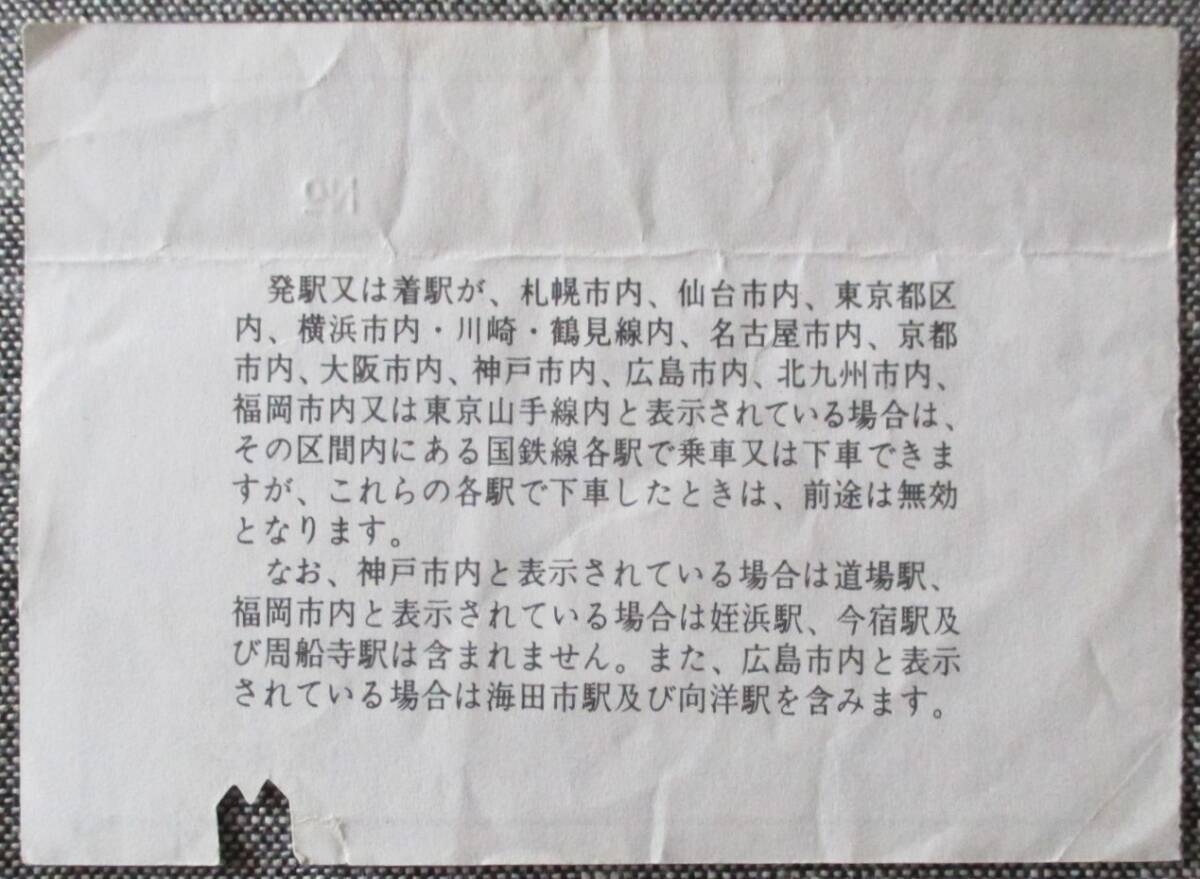 №
発駅又は着駅が、札幌市内、仙台市内、東京都区
内、横浜市内・川崎・鶴見線内、名古屋市内、京都
市内、大阪市内、神戸市内、広島市内、北九州市内、
福岡市内又は東京山手線内と表示されている場合は、
その区間内にある国鉄線各駅で乗車又は下車できま
すが、これらの各駅で下車したときは、前途は無効
となります。
なお、神戸市内と表示されている場合は道場駅、
福岡市内と表示されている場合は姪浜駅、今宿駅及
び周船寺駅は含まれません。また、広島市内と表示
されている場合は海田市駅及び向洋駅を含みます。